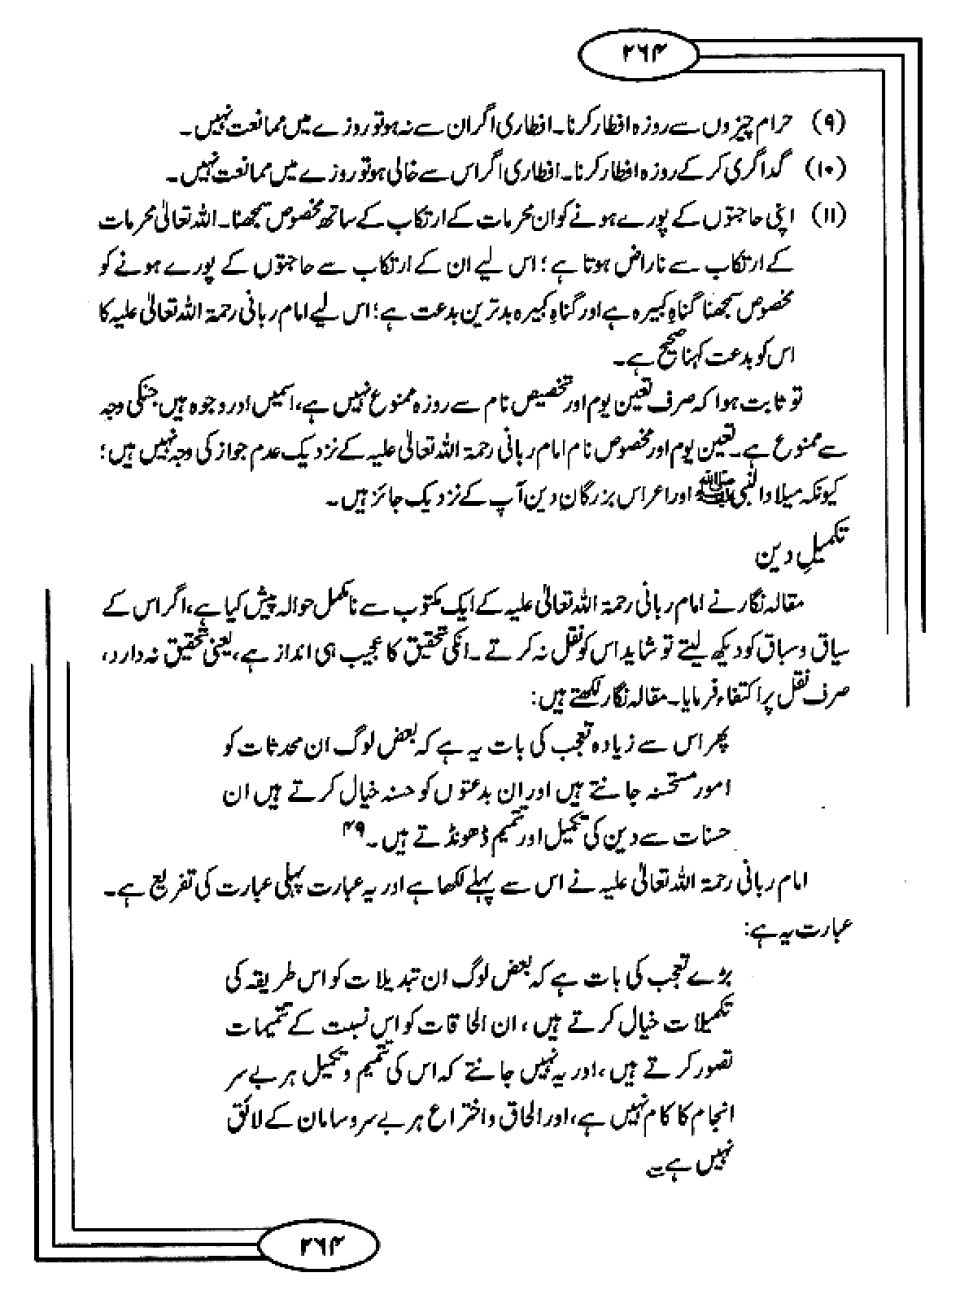 ۲۶۴
(۹) حرام چیزوں سے روزہ افطار کرنا۔ افطاری اگر ان سے نہ ہو تو روزے میں ممانعت نہیں۔
(۱۰) گداگری کر کے روزہ افطار کرنا۔ افطاری اگر اس سے خالی ہو تو روزے میں ممانعت نہیں۔
(۱۱) اپنی حاجتوں کے پورے ہونے کو ان محرمات کے ارتکاب کے ساتھ مخصوص سمجھنا۔ اللہ تعالیٰ محرمات
کے ارتکاب سے ناراض ہوتا ہے؛ اس لیے ان کے ارتکاب سے حاجتوں کے پورے ہونے کو
مخصوص سمجھنا گناہِ کبیرہ ہے اور گناہِ کبیرہ بدترین بدعت ہے؛ اس لیے امام ربانی رحمۃ اللہ تعالیٰ علیہ کا
اس کو بدعت کہنا صحیح ہے۔
تو ثابت ہوا کہ صرف تعین یوم اور تخصیص نام سے روزہ ممنوع نہیں ہے، اسمیں اور وجوہ ہیں جنکی وجہ
سے ممنوع ہے۔ تعین یوم اور مخصوص نام امام ربانی رحمۃ اللہ تعالیٰ علیہ کے نزدیک عدم جواز کی وجہ نہیں ہیں؛
کیونکہ میلاد النبی ﷺ اور اعراس بزرگانِ دین آپ کے نزدیک جائز ہیں۔
تکمیلِ دین
مقالہ نگار نے امام ربانی رحمۃ اللہ تعالیٰ علیہ کے ایک مکتوب سے نامکمل حوالہ پیش کیا ہے، اگر اس کے
سیاق و سباق کو دیکھ لیتے تو شاید اس کو نقل نہ کرتے۔ انکی تحقیق کا عجیب ہی انداز ہے، یعنی تحقیق نہ دارد،
صرف نقل پر اکتفاء فرمایا۔ مقالہ نگار لکھتے ہیں:
پھر اس سے زیادہ تعجب کی بات یہ ہے کہ بعض لوگ ان محدثات کو
امور مستحسنہ جانتے ہیں اور ان بدعتوں کو حسنہ خیال کرتے ہیں ان
حسنات سے دین کی تکمیل اور تتمیم ڈھونڈتے ہیں۔ ۴۹
امام ربانی رحمۃ اللہ تعالیٰ علیہ نے اس سے پہلے لکھا ہے اور یہ عبارت پہلی عبارت کی تفریع ہے۔
عبارت یہ ہے:
بڑے تعجب کی بات ہے کہ بعض لوگ ان تبدیلات کو اس طریقہ کی
تکمیلات خیال کرتے ہیں، ان الحاقات کو اس نسبت کے تتمیمات
تصور کرتے ہیں، اور یہ نہیں جانتے کہ اس کی تتمیم و تکمیل ہر بے سر
انجام کا کام نہیں ہے، اور الحاق و اختراع ہر بے سر و سامان کے لائق
نہیں ہے۔
۲۶۴